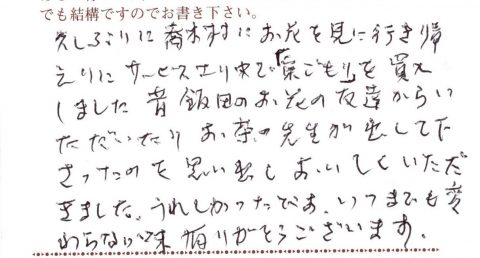 でも結構ですのでお書き下さい。
久しぶりに喬木村にお花を見に行き帰
えりにサービスエリアで「巣ごもり」を買い
しました 昔飯田のお花の友達からい
ただいたり お茶の先生が出して下
さったのを思い出しおいしくいただ
きました。うれしかったです。いつまでも変
わらない味 有りがとうございます。